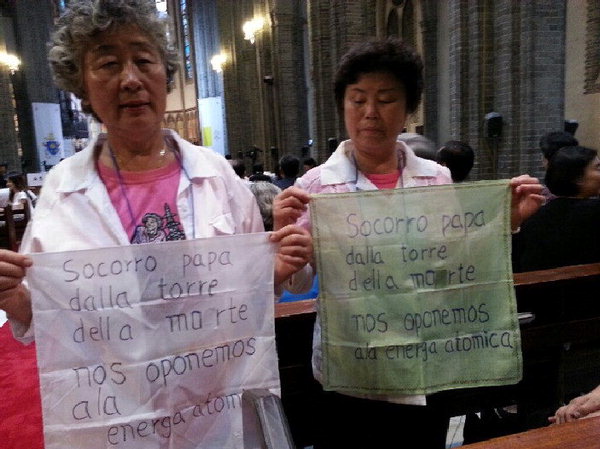 Socorro papa
dalla torre
della morte
nos oponemos
ala
energa atom
Socorro papa
dalla torre
della morte
nos oponemos
ala energa atomica